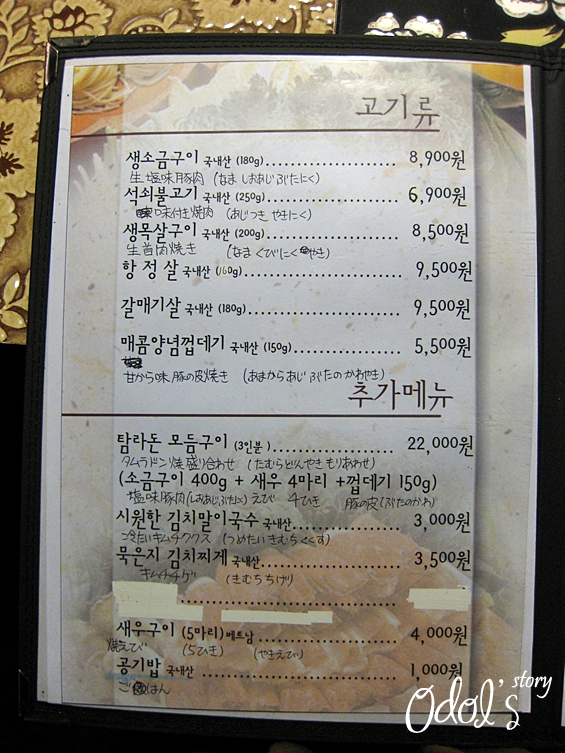 고기류
생소금구이 국내산 (180g)........................ 8,900원
生 塩味 豚肉 (なま しおあじ ぶたにく)
석쇠불고기 국내산 (250g)........................ 6,900원
味付き焼肉 (あじつき やきにく)
생목살구이 국내산 (200g)........................ 8,500원
生首肉焼き (なま くびにく やき)
항정살 국내산 (160g)........................ 9,500원
갈매기살 국내산 (180g)........................ 9,500원
매콤양념껍데기 국내산 (150g)........................ 5,500원
甘から味 豚の皮焼き (あまからあじ ぶたの かわやき)
추가메뉴
탐라돈 모듬구이 (3인분)........................ 22,000원
タムラドン焼 盛り合わせ (たむらどんやき もりあわせ)
(소금구이 400g + 새우 4마리 +껍데기 150g)
塩味豚肉(しおあじぶたにく) えび 4ひき 豚の皮(ぶたのかわ)
시원한 김치말이국수 국내산........................ 3,000원
冷たいキムチククス (つめたい きむちくくす)
묵은지 김치찌게 국내산........................ 3,500원
キムチチゲ (きむちちげ)
새우구이 (5마리) 베트남........................ 4,000원
焼えび (5ひき) (やきえび)
공기밥 국내산........................ 1,000원
ごはん
Odol's story